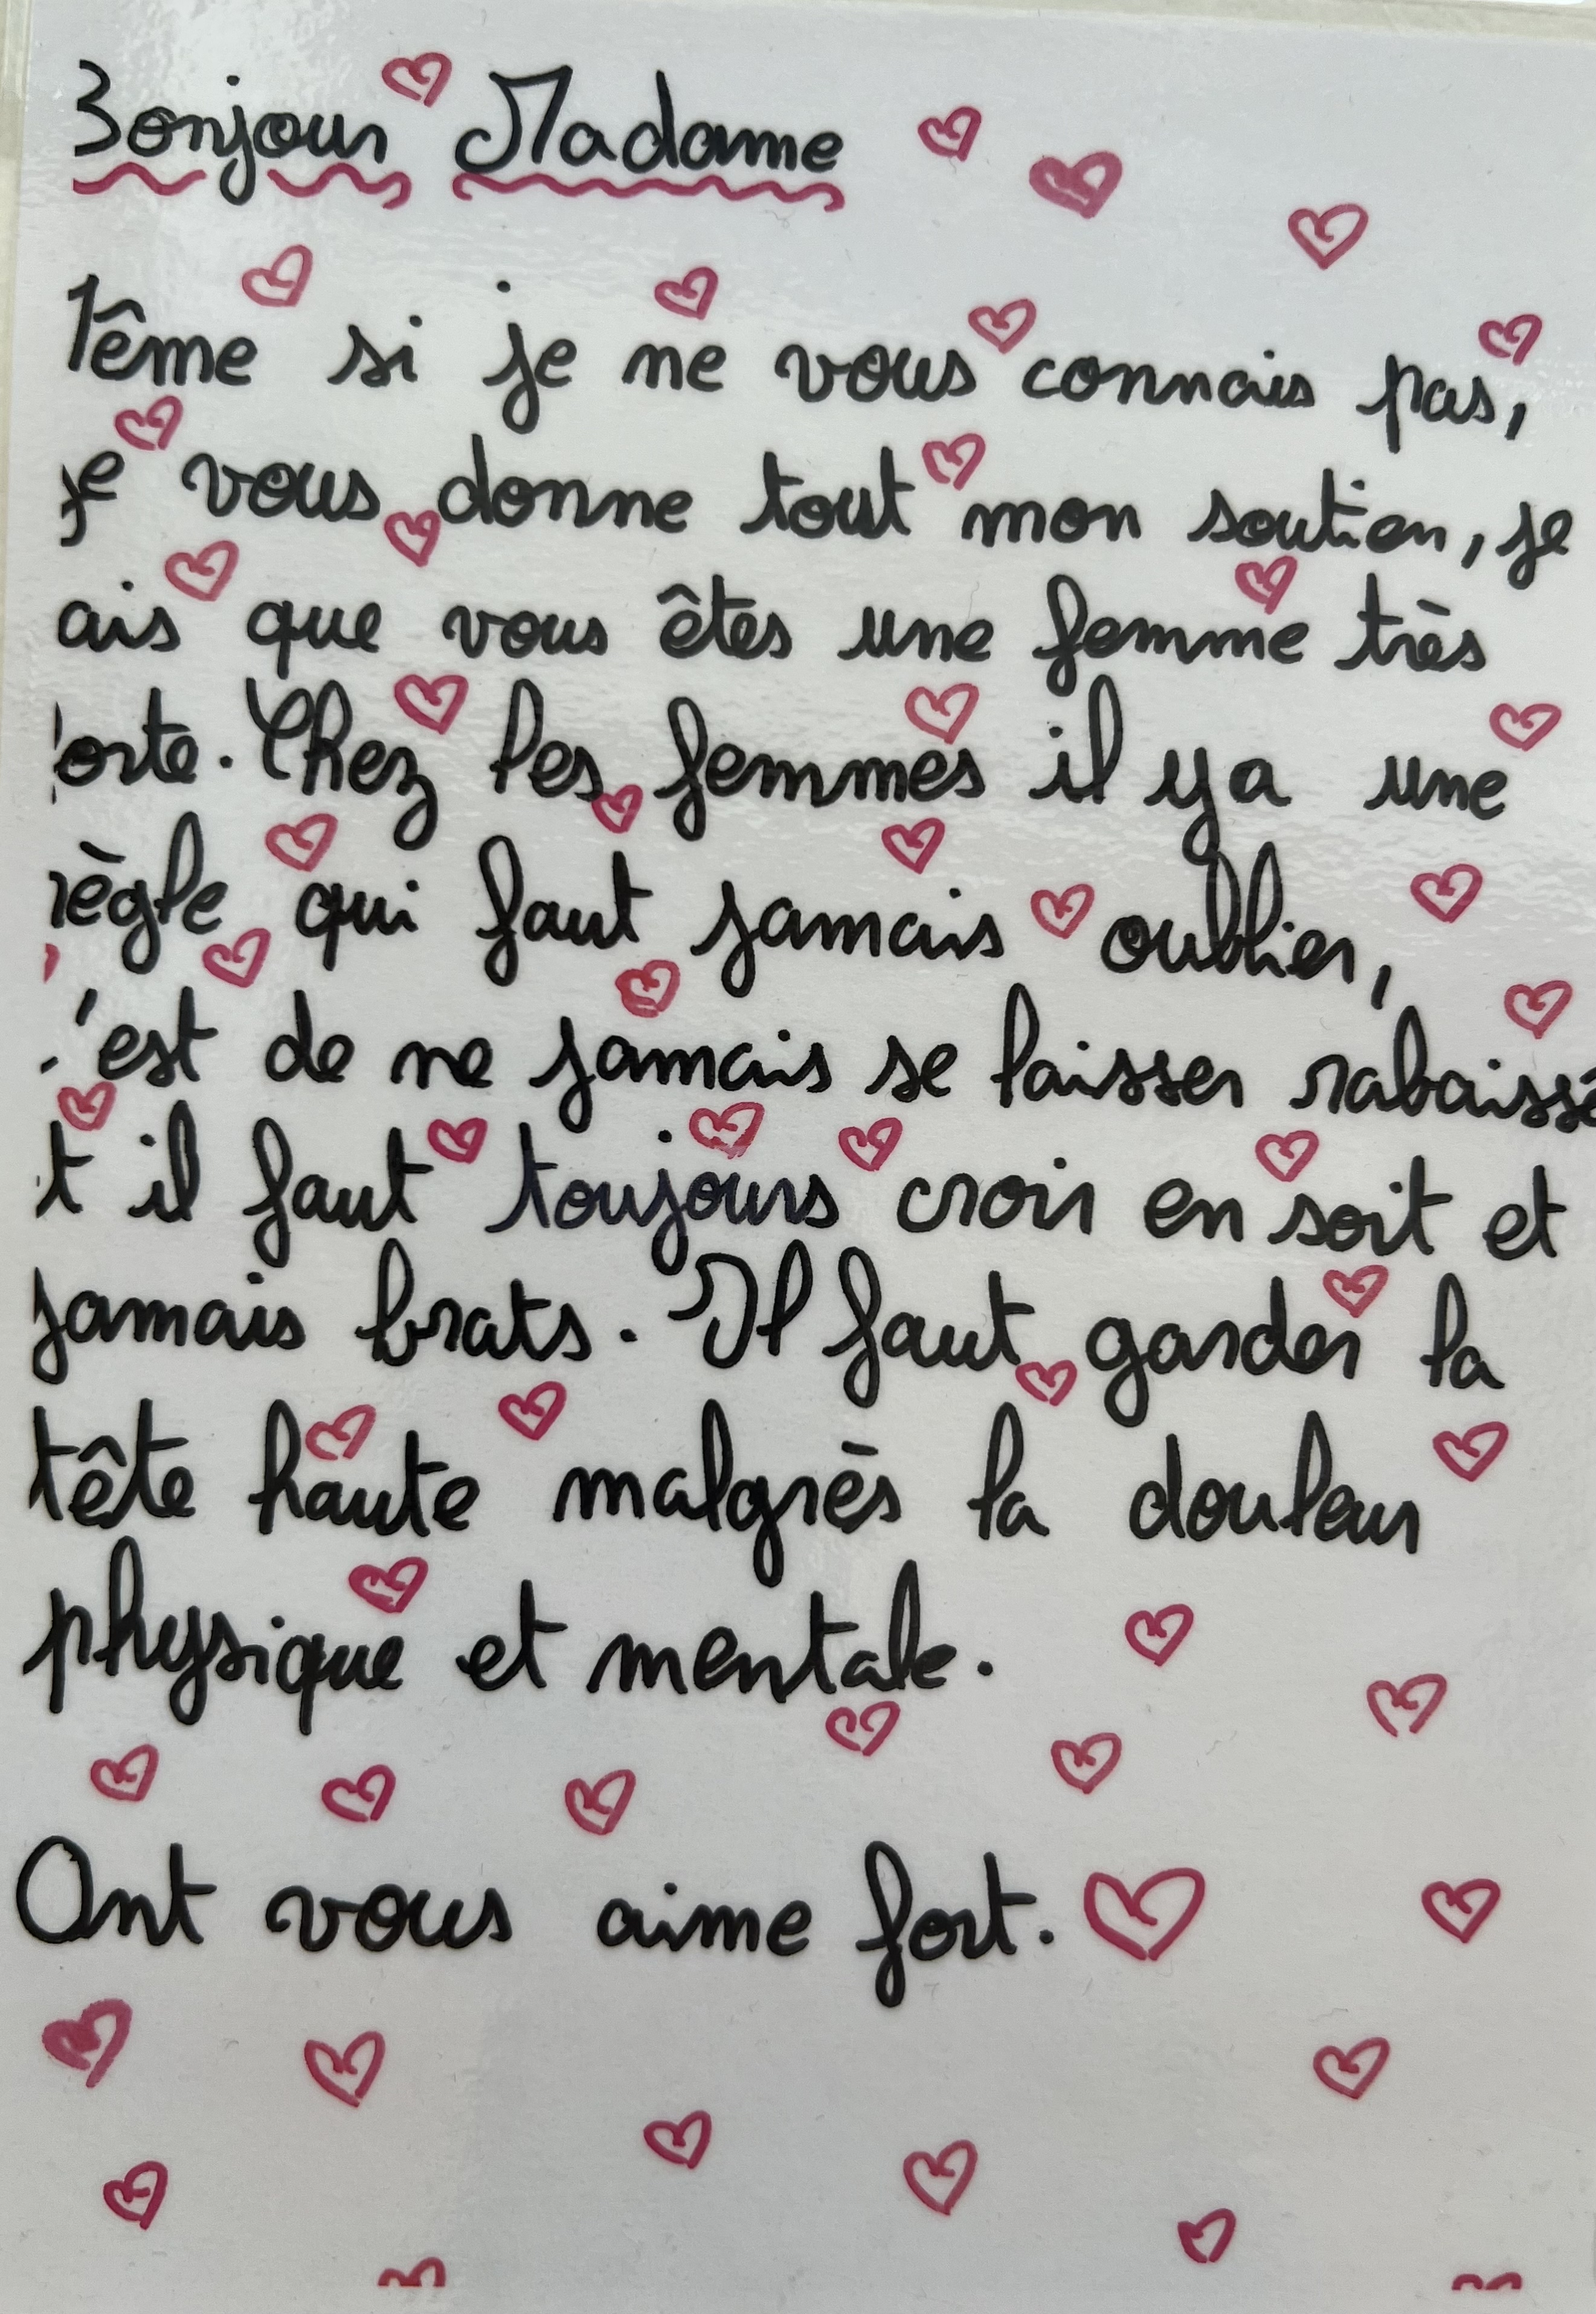 Bonjour Madame
Même si je ne vous connais pas,
je vous donne tout mon soutien, je
ais que vous êtes une femme très
forte. Chez les femmes il y a une
règle qui faut jamais oublier,
c'est de ne jamais se laisser rabaisse
t il faut toujours croir en soit et
jamais brats. Il faut garder la
tête haute malgrès la douleur
physique et mentale.
Ont vous aime fort.